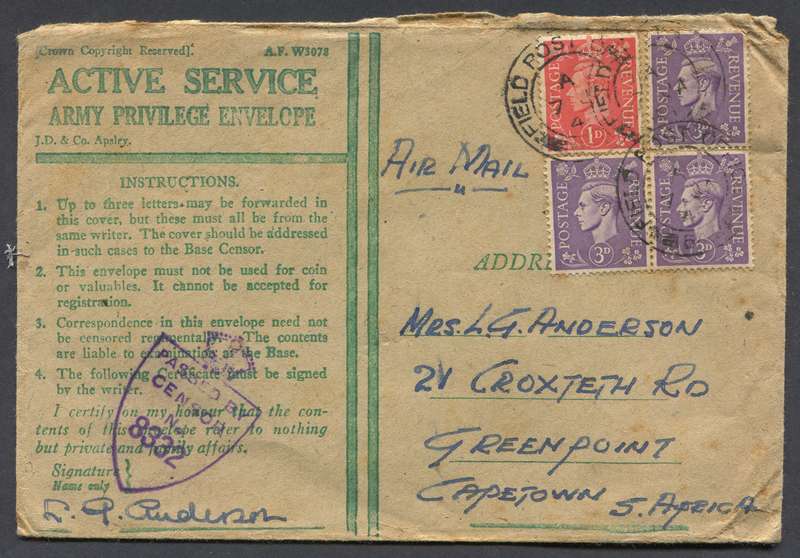 [Crown Copyright Reserved].
A.F. W3078
ACTIVE SERVICE
ARMY PRIVILEGE ENVELOPE
J.D. & Co. Apsley.
INSTRUCTIONS.
1. Up to three letters may be forwarded in
this cover, but these must all be from the
same writer. The cover should be addressed
in such cases to the Base Censor.
2. This envelope must not be used for coin
or valuables. It cannot be accepted for
registration.
3. Correspondence in this envelope need not
be censored regimentally. The contents
are liable to examination at the Base.
4. The following Certificate must be signed
by the writer.
I certify on my honour that the con-
tents of this envelope refer to nothing
but private and family affairs.
Signature
Name only
L. G. Anderson
PASSED BY
CENSOR
No.
8332
AIR MAIL
POSTAGE
REVENUE
1D
POSTAGE
REVENUE
3D
POSTAGE
REVENUE
3D
POSTAGE
REVENUE
3D
FIELD POST
ADDRE
MRS. L. G. ANDERSON
21 CROXTETH RD
GREENPOINT
CAPETOWN S. AFRICA